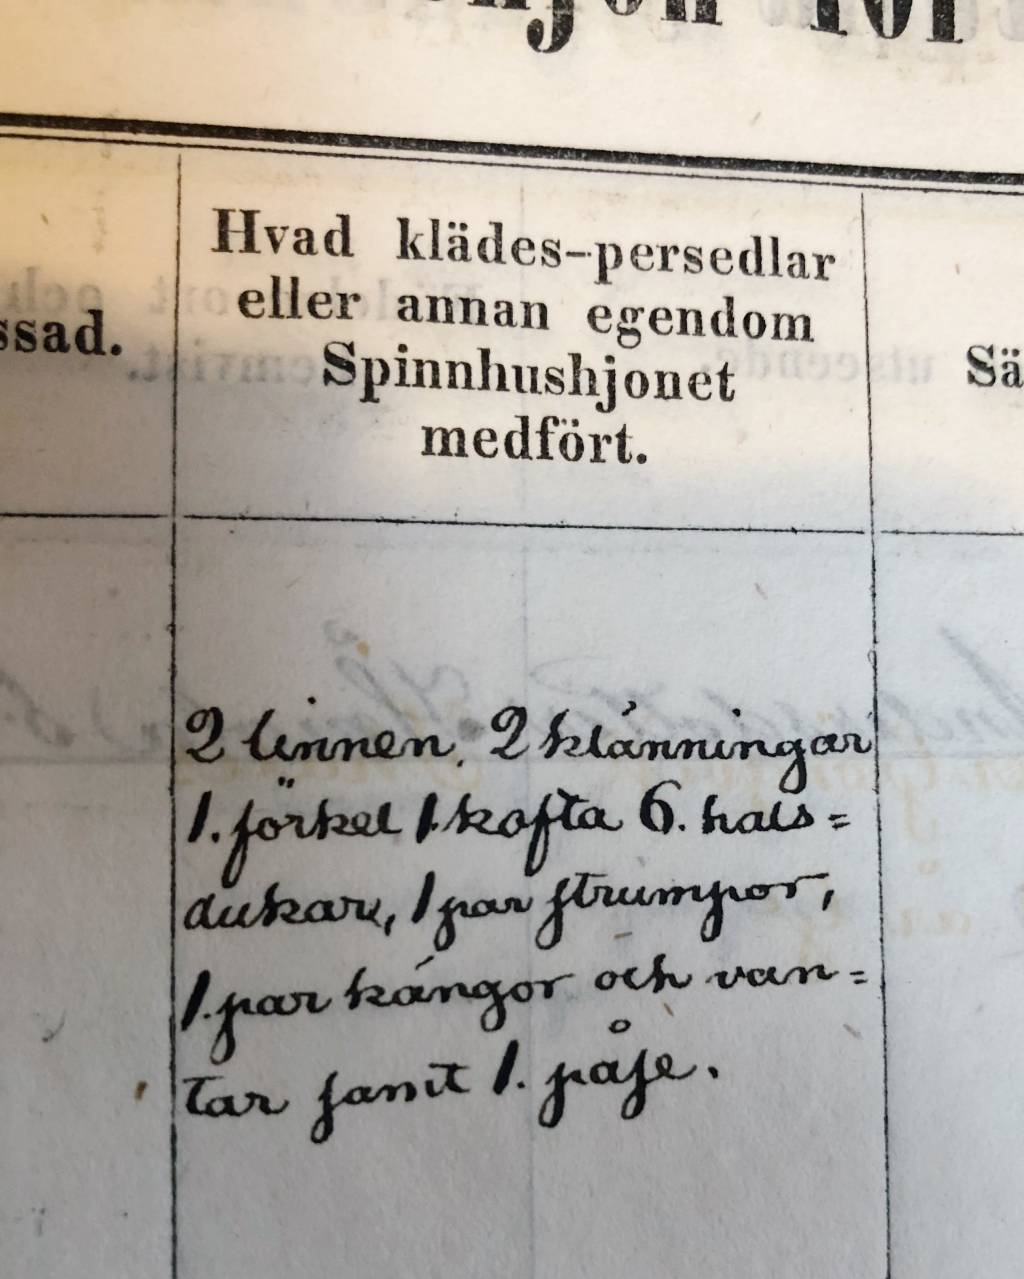 ssad.
Hvad klädes-persedlar
eller annan egendom
Spinnhushjonet
medfört.
Sä
2 linnen, 2 klänningar
1. förkel 1. kofta 6. hals=
dukar, 1 par strumpor,
1. par kängor och van=
tar samt 1. påse.